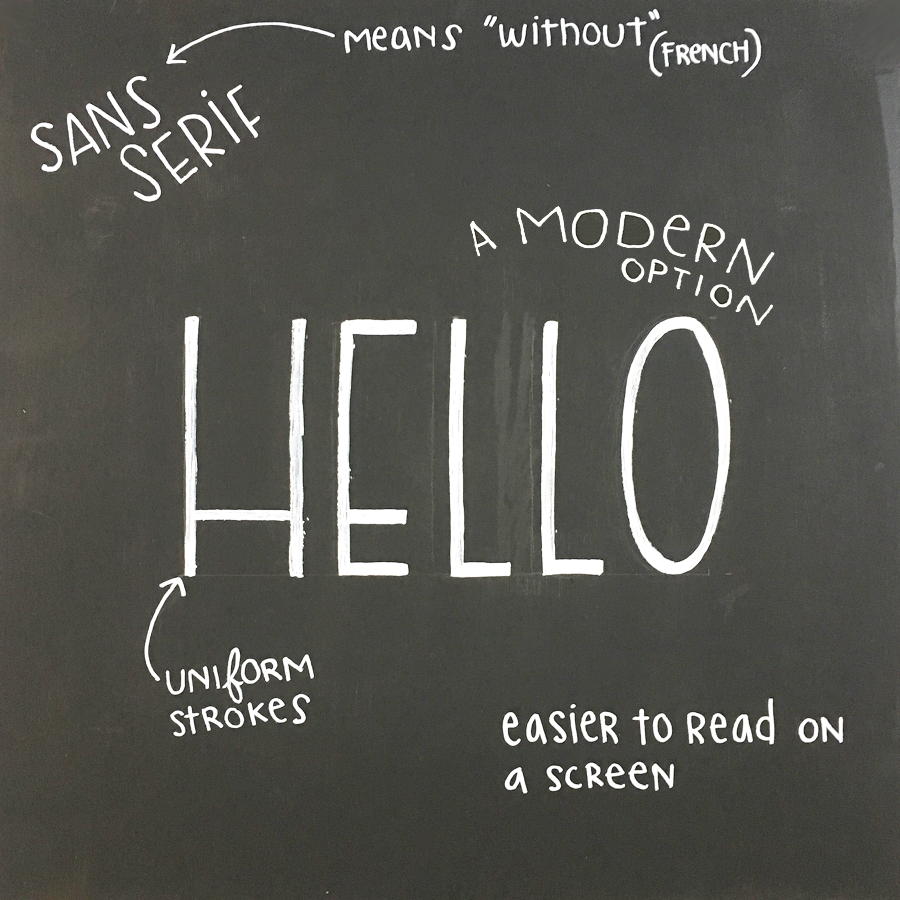 MEANS "without"
(FRENCH)
SANS
SERIF
A MODERN
OPTION
HELLO
UNIFORM
STROKES
easier to Read ON
a SCREEN